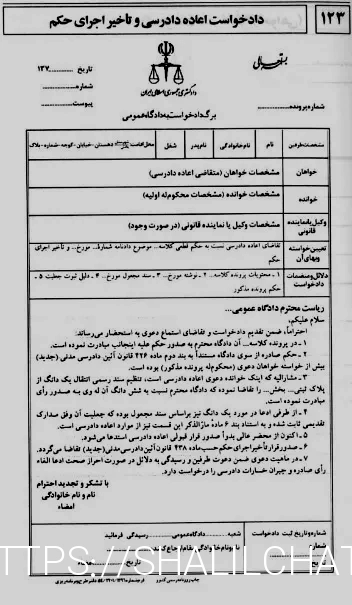 ۱۲۳
دادخواست اعاده دادرسی و تأخیر اجرای حکم
بسمه تعالی
تاریخ ............ ۱۳۷
شماره ............
پیوست ............
دادگستری جمهوری اسلامی ایران
شماره پرونده ............
برگ دادخواست به دادگاه عمومی
مشخصات طرفین نام نام خانوادگی نام پدر شغل محل اقامت شهر دهستان - خیابان - کوچه - شماره - پلاک
خواهان مشخصات خواهان (متقاضی اعاده دادرسی)
خوانده مشخصات خوانده (مشخصات محکوم‌له اولیه)
وکیل یا نماینده قانونی مشخصات وکیل یا نماینده قانونی (در صورت وجود)
تعیین خواسته و بهای آن تقاضای اعاده دادرسی نسبت به حکم قطعی کلاسه... موضوع دادنامه شماره... مورخ... و تأخیر اجرای حکم
دلائل و منضمات دادخواست ۱ - محتویات پرونده کلاسه... ۲ - نوشته مورخ... ۳ - سند مجعول مورخ... ۴ - دلیل ثبوت جعلیت ۵ - حکم پرونده مذکور
ریاست محترم دادگاه عمومی...
سلام علیکم،
احتراماً، ضمن تقدیم دادخواست و تقاضای استماع دعوی به استحضار می‌رساند:
۱ - در پرونده کلاسه... آن دادگاه محترم به صدور حکم علیه اینجانب مبادرت نموده است.
۲ - حکم صادره از سوی دادگاه مستنداً به بند دوم ماده ۴۲۶ قانون آئین دادرسی مدنی (جدید) بیش از خواسته خواهان دعوی (محکوم‌له پرونده مذکور) بوده است.
۳ - مشارالیه که اینک خوانده دعوی اعاده دادرسی است، تنظیم سند رسمی انتقال یک دانگ از پلاک ثبتی... بخش... را تقاضا نموده که دادگاه محترم نسبت به شش دانگ آن له وی به صدور رأی مبادرت نموده است.
۴ - از طرفی ادعا در مورد یک دانگ نیز براساس سند مجعول بوده که جعلیت آن وفق مدارک تقدیمی ثابت شده و به استناد بند ۶ ماده مارالذکر این قسمت نیز از موارد اعاده دادرسی است.
۵ - اکنون از محضر عالی بدواً صدور قرار قبولی اعاده دادرسی استدعا می‌شود.
۶ - صدور قرار تأخیر اجرای حکم حسب ماده ۴۳۸ قانون آئین دادرسی مدنی (جدید) تقاضا می‌گردد.
۷ - در ماهیت دعوی ضمن دعوت طرفین و رسیدگی به دلائل در صورت احراز صحت ادعا الغاء رأی صادره و جبران خسارات دادرسی را درخواست دارد.
با تشکر و تجدید احترام
نام و نام خانوادگی
امضاء
شماره و تاریخ ثبت دادخواست
شماره
تاریخ
شعبه ............ دادگاه عمومی ............ رسیدگی فرمائید
نام و نام خانوادگی مقام ارجاع کننده
تاریخ ............ امضاء
HTTPS://SHALILCHAT